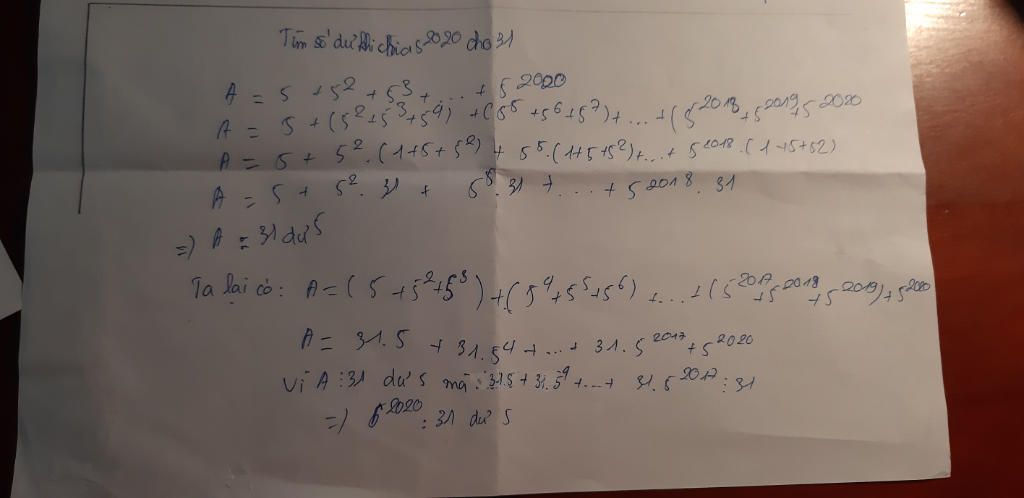 Tìm số dư khi chia 5^2020 cho 31
A = 5 + 5^2 + 5^3 + ... + 5^2020
A = 5 + (5^2 + 5^3 + 5^4) + (5^5 + 5^6 + 5^7) + ... + (5^2018 + 5^2019 + 5^2020
A = 5 + 5^2 . (1 + 5 + 5^2) + 5^5 . (1 + 5 + 5^2) + ... + 5^2018 . (1 + 5 + 52)
A = 5 + 5^2 . 31 + 5^5 . 31 + ... + 5^2018 . 31
=) A = 31 dư 5
Ta lại có: A = (5 + 5^2 + 5^3) + (5^4 + 5^5 + 5^6) + ... + (5^2017 + 5^2018 + 5^2019) + 5^2020
A = 31.5 + 31.5^4 + ... + 31.5^2017 + 5^2020
Vì A : 31 dư 5 mà : 31.5 + 31.5^4 + ... + 31.5^2017 : 31
=) 5^2020 : 31 dư 5